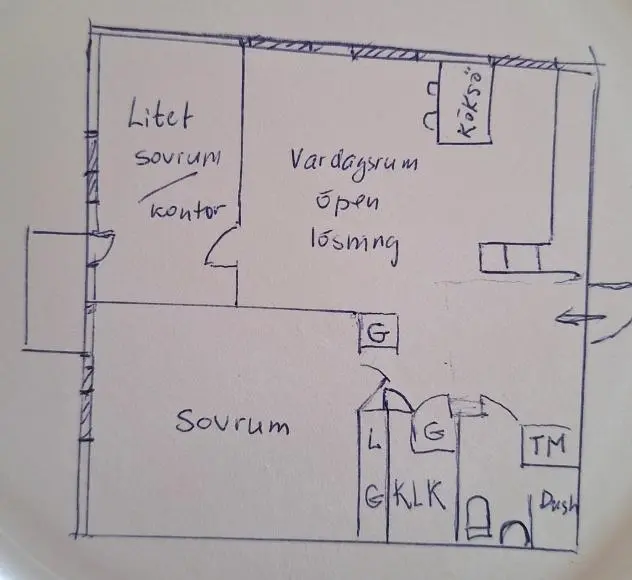 Litet
sovrum
/
kontor
Vardagsrum
öpen
lösning
KÖKSÖ
G
Sovrum
L
G
G
KLK
TM
Dush